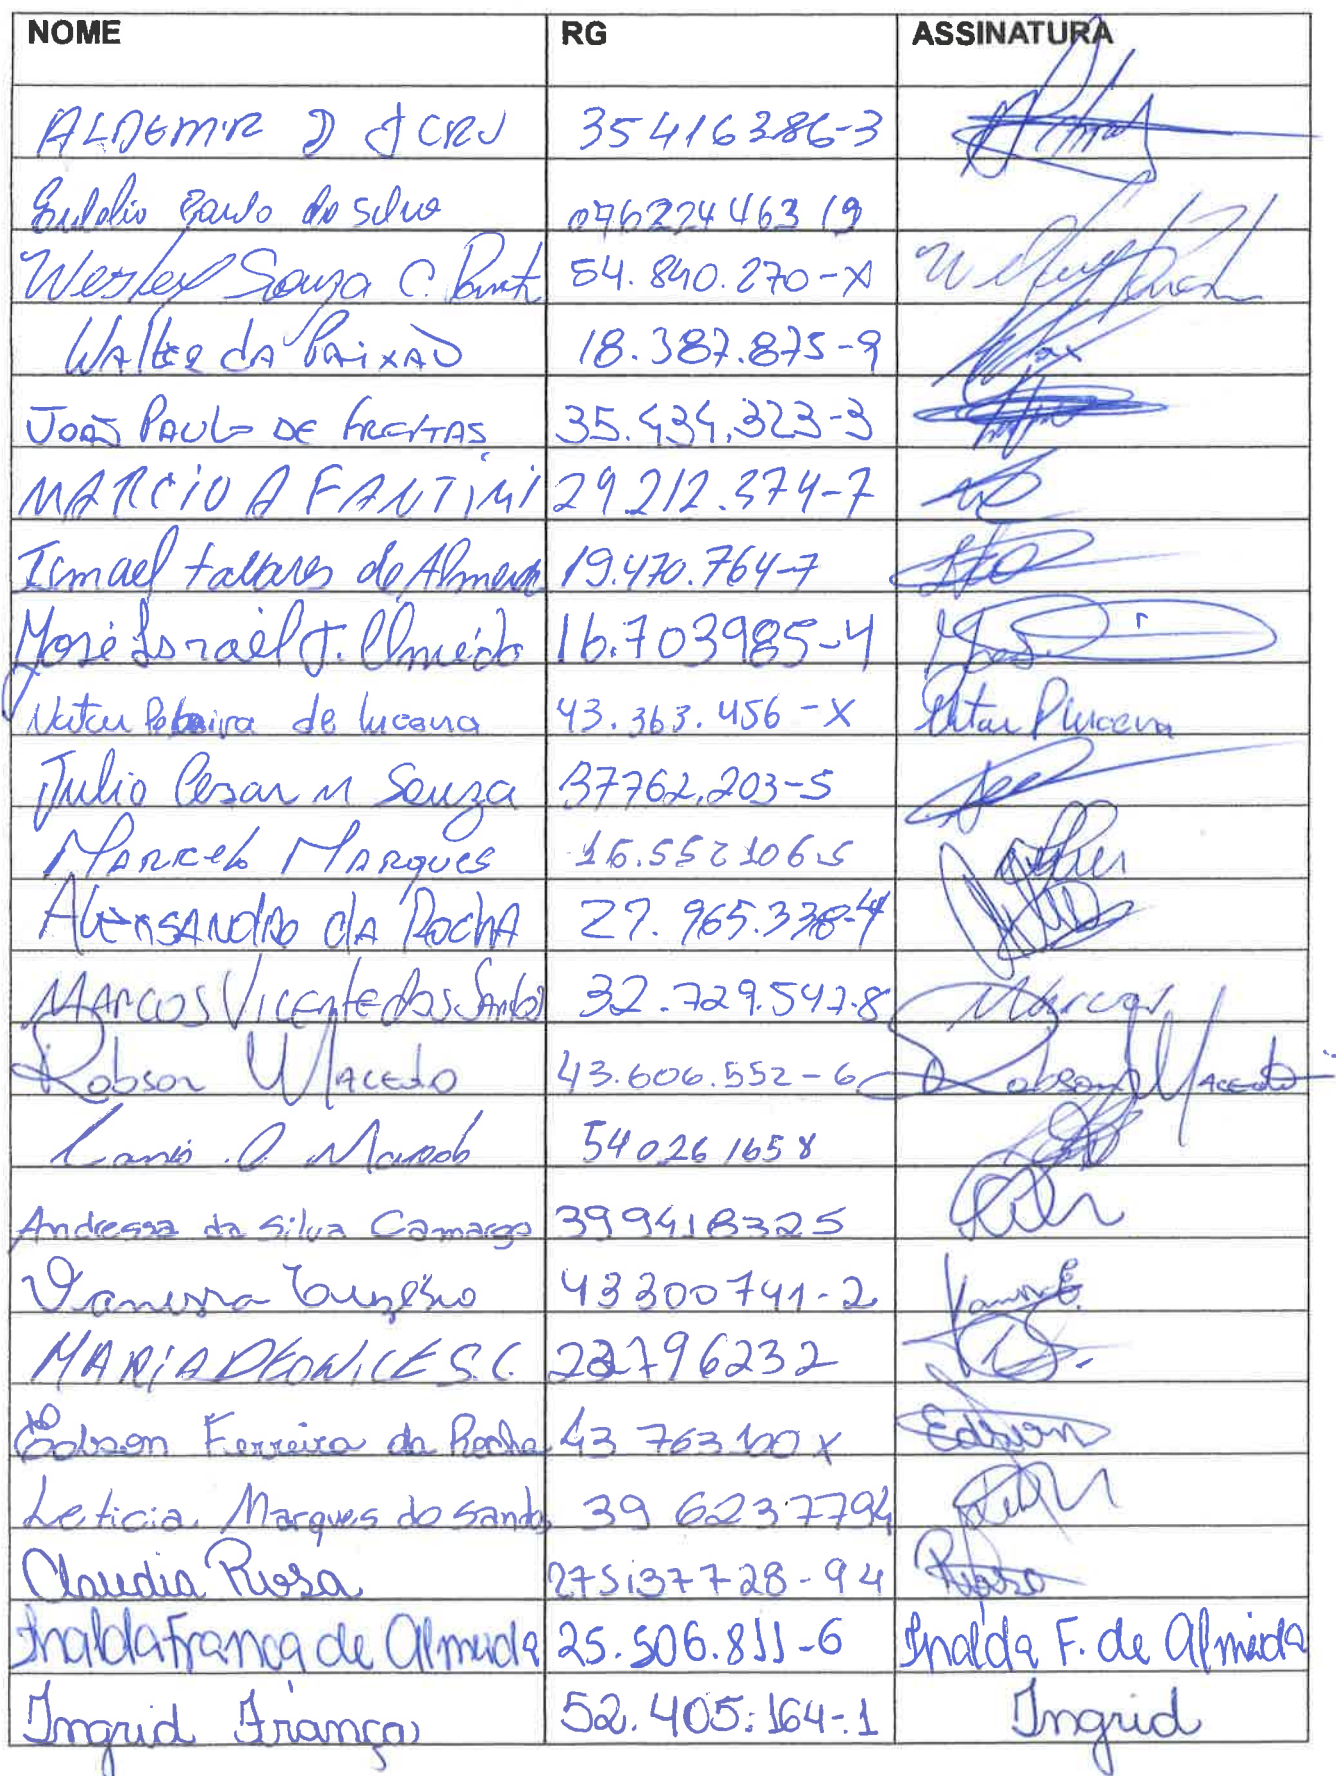 NOME RG ASSINATURA
ALDEMIR D J CRU 35416386-3
Eulalio Paulo da silva 096224463 19
Wesley Souza C. 54.840.270-X
WALTER DA PAIXAO 18.387.875-9
JOÃO PAULO DE FREITAS 35.434.323-3
MARCIO A FANTINI 29.212.374-7
Ismael tavares de Almeida 19.470.764-7
José Israel J. Almeida 16.703985-4
Natan de lucena 43.363.456-X
Julio Cesar M Souza 37762.203-5
MARCELO MARQUES 16.5521065
ALEXSANDRO DA ROCHA 27.965.338-4
MARCOS VICENTE DOS SANTOS 32.729.547-8 Marcos
Robson MACEDO 43.606.552-6 Robson MACEDO
O 540261658
Andressa da Silva Camargo 399418325
Vanessa Euzébio 43300741-2 Vaness E.
MARIA DEONICE S.C. 22796232
Edson Ferreira da Rocha 43 763100 X Edson
Leticia Marques do santos 39 6237794
Claudia Rosa 275137728-94 Rosa
Inalda França de Almeida 25.506.811-6 Inalda F. de Almeida
Ingrid França 52.405.164-1 Ingrid